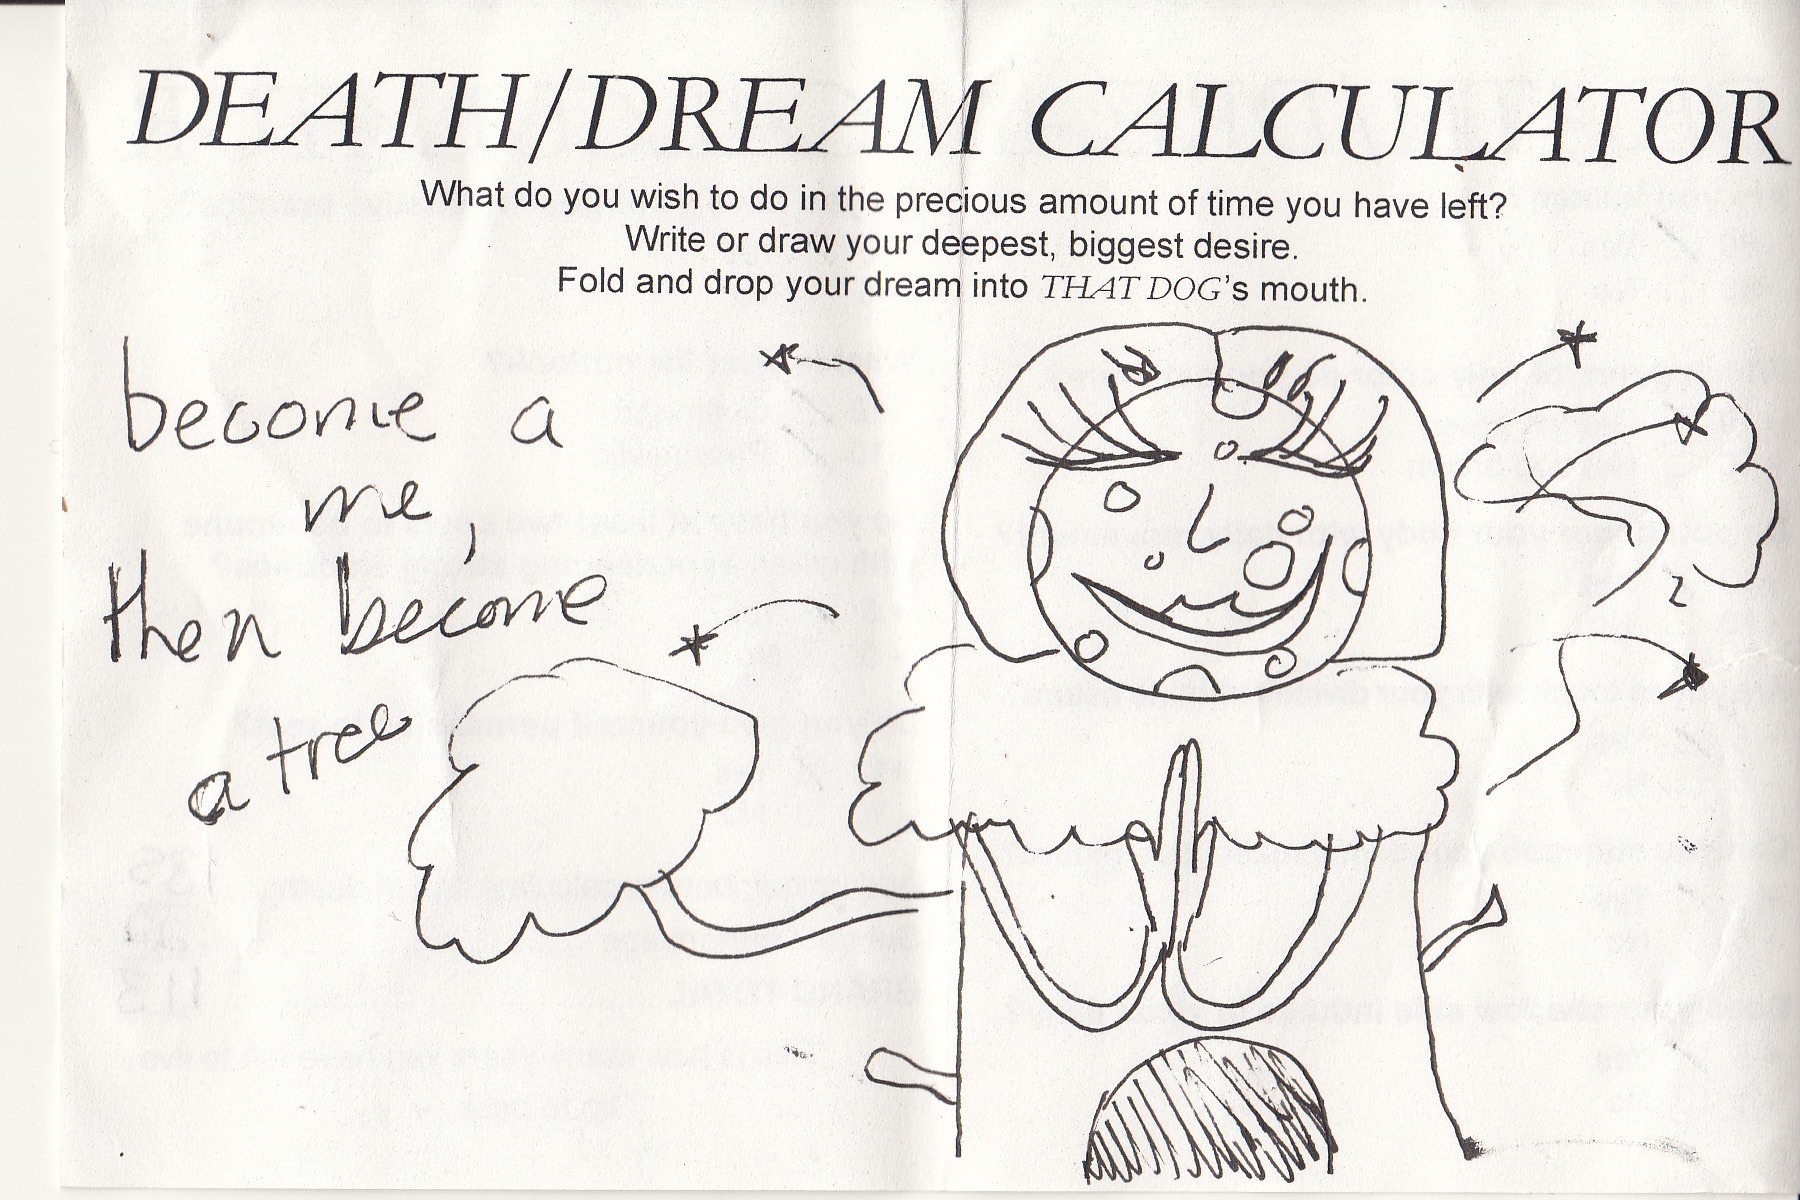 DEATH/DREAM CALCULATOR
What do you wish to do in the precious amount of time you have left?
Write or draw your deepest, biggest desire.
Fold and drop your dream into THAT DOG's mouth.
become a
me,
then become
a tree